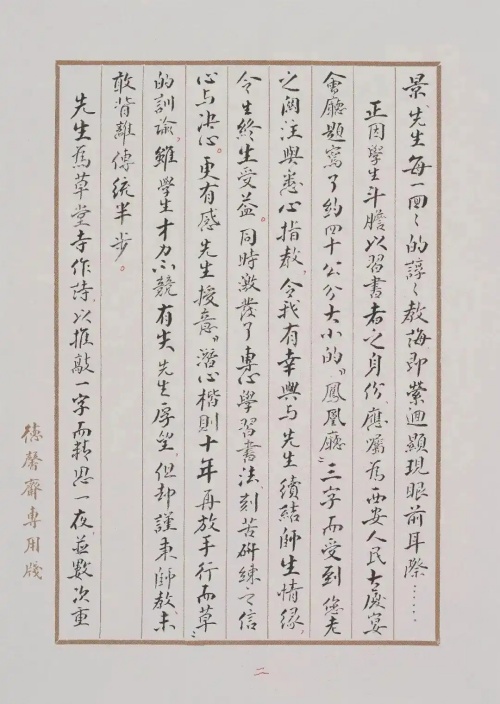 景，先生每一回々的諄々教誨即縈迴顯現眼前耳際……
正因學生斗膽以習書者之身份，應囑為西安人民大廈宴
會廳題寫了約四十公分大小的“鳳凰廳”三字而受到您老
之關注與悉心指教，令我有幸與先生續結師生情緣，
令生終生受益。同時激發了專心學習書法、刻苦研練之信
心与决心。更有感先生授意“潛心楷則十年再放手行而草”
的訓諭，雖學生才力不競有失先生厚望，但却謹秉師教未
敢背離傳統半步。
先生為草堂寺作詩，以推敲一字而精思一夜並數次重
德馨齋專用牋
二